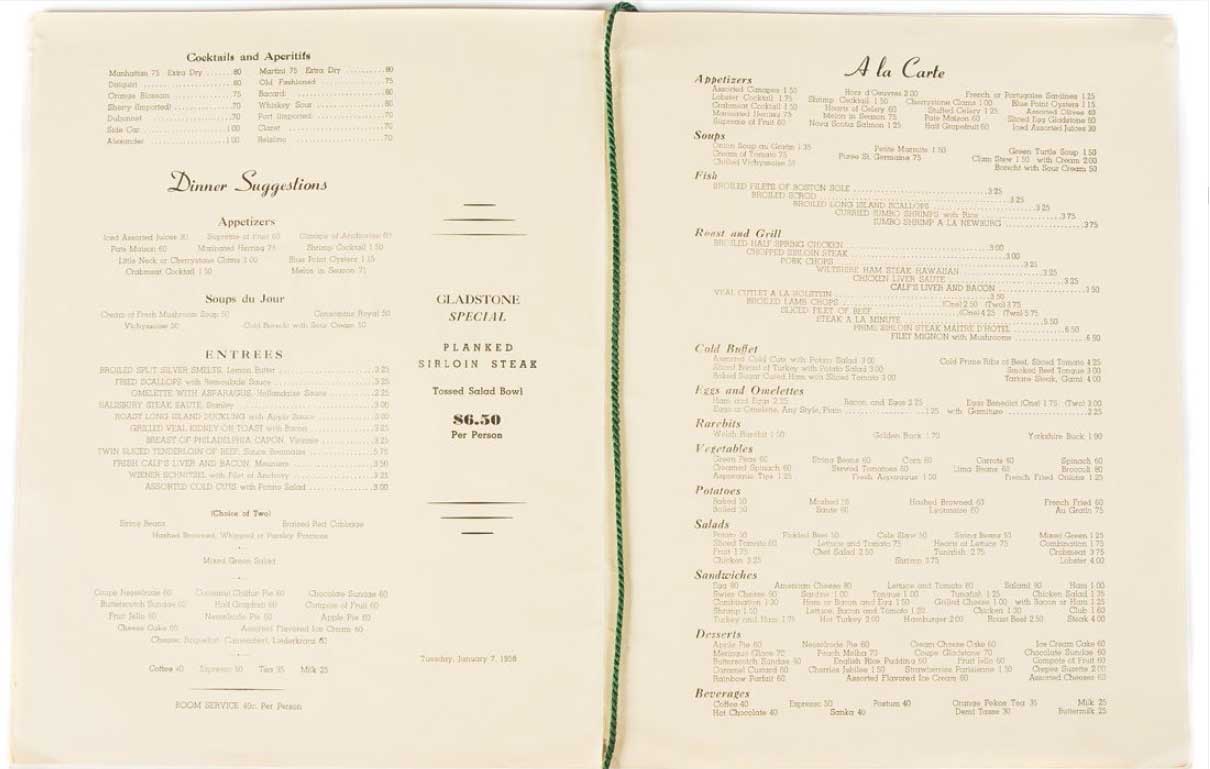 Cocktails and Aperitifs
Manhattan 75 Extra Dry ...... 80
Daiquiri ...... 80
Orange Blossom ...... 75
Sherry (Imported) ...... .70
Dubonnet ...... .70
Side Car ...... 1.00
Alexander ...... 1.00
Martini 75 Extra Dry ...... 80
Old Fashioned ...... 75
Bacardi ...... 80
Whiskey Sour ...... 80
Port (Imported) ...... .70
Claret ...... .70
Reisling ...... .70
Dinner Suggestions
Appetizers
Iced Assorted Juices 30 Supreme of Fruit 60 Canape of Anchovies 60
Pate Maison 60 Marinated Herring 75 Shrimp Cocktail 1 50
Little Neck or Cherrystone Clams 1 00 Blue Point Oysters 1 15
Crabmeat Cocktail 1 50 Melon in Season 75
Soups du Jour
Cream of Fresh Mushroom Soup 50 Consomme Royal 50
Vichyssoise 50 Cold Borscht with Sour Cream 50
ENTREES
BROILED SPLIT SILVER SMELTS, Lemon Butter ...... 3 25
FRIED SCALLOPS with Remoulade Sauce ...... 3 25
OMELETTE WITH ASPARAGUS, Hollandaise Sauce ...... 2 25
SALISBURY STEAK SAUTE, Stanley ...... 3 00
ROAST LONG ISLAND DUCKLING with Apple Sauce ...... 3 00
GRILLED VEAL KIDNEY ON TOAST with Bacon ...... 3 25
BREAST OF PHILADELPHIA CAPON, ...... 3 25
TWIN SLICED TENDERLOIN OF BEEF, Sauce Bearnaise ...... 5 75
FRESH CALF'S LIVER AND BACON, Meuniere ...... 3 50
WIENER SCHNITZEL with Filet of Anchovy ...... 3 25
ASSORTED COLD CUTS with Potato Salad ...... 3 00
(Choice of Two)
String Beans Braised Red Cabbage
Hashed Browned, Whipped or Parsley Potatoes
Mixed Green Salad
Coupe Nesselrode 60 Coconut Chiffon Pie 60 Chocolate Sundae 60
Butterscotch Sundae 60 Half Grapefruit 60 Compote of Fruit 60
Fruit Jello 60 Nesselrode Pie 60 Apple Pie 60
Cheese Cake 60 Assorted Flavored Ice Cream 60
Cheese: Roquefort, Camembert, Liederkranz 60
Coffee 40 Espresso 50 Tea 35 Milk 25
ROOM SERVICE 40c. Per Person
GLADSTONE
SPECIAL
PLANKED
SIRLOIN STEAK
Tossed Salad Bowl
$6.50
Per Person
Tuesday, January 7, 1958
A la Carte
Appetizers
Assorted Canapes 1 50 Hors d'Oeuvres 2 00 French or Portugaise Sardines 1 25
Lobster Cocktail 1 75 Shrimp Cocktail 1 50 Cherrystone Clams 1 00 Blue Point Oysters 1 15
Crabmeat Cocktail 1 50 Hearts of Celery 60 Stuffed Celery 1 25 Assorted Olives 40
Marinated Herring 75 Melon in Season 75 Pate Maison 60 Sliced Egg Gladstone 60
Supreme of Fruit 60 Nova Scotia Salmon 1 25 Half Grapefruit 60 Iced Assorted Juices 30
Soups
Onion Soup au Gratin 1 35 Petite Marmite 1 50 Green Turtle Soup 1 50
Cream of Tomato 75 Puree St. Germaine 75 Clam Stew 1 50 with Cream 2 00
Chilled Vichyssoise 50 Borscht with Sour Cream 50
Fish
BROILED FILETS OF BOSTON SOLE ...... 3 25
BROILED SCROD ...... 3 25
BROILED LONG ISLAND SCALLOPS ...... 3 25
CURRIED JUMBO SHRIMPS with Rice ...... 3 75
JUMBO SHRIMP A LA NEWBURG ...... 3 75
Roast and Grill
BROILED HALF SPRING CHICKEN ...... 3 00
CHOPPED SIRLOIN STEAK ...... 3 00
PORK CHOPS ...... 3 25
WILTSHIRE HAM STEAK HAWAIIAN ...... 3 25
CHICKEN LIVER SAUTE ...... 3 25
CALF'S LIVER AND BACON ...... 3 50
VEAL CUTLET A LA HOLSTEIN ...... 3 50
BROILED LAMB CHOPS ...... (One) 2 50 (Two) 3 75
SLICED FILET OF BEEF ...... (One) 4 25 (Two) 5 75
STEAK A LA MINUTE ...... 5 50
PRIME SIRLOIN STEAK MAITRE D'HOTEL ...... 6 50
FILET MIGNON with Mushrooms ...... 6 50
Cold Buffet
Assorted Cold Cuts with Potato Salad 3 00 Cold Prime Ribs of Beef, Sliced Tomato 4 25
Sliced Breast of Turkey with Potato Salad 3 00 Smoked Beef Tongue 3 00
Baked Sugar Cured Ham with Sliced Tomato 3 00 Tartare Steak, Garni 4 00
Eggs and Omelettes
Ham and Eggs 2 25 Bacon and Eggs 2 25 Eggs Benedict (One) 1 75 (Two) 3 00
Eggs or Omelette, Any Style, Plain ...... 1 25 with Garniture ...... 2 25
Rarebits
Welsh Rarebit 1 50 Golden Buck 1 70 Yorkshire Buck 1 90
Vegetables
Green Peas 60 String Beans 60 Corn 60 Carrots 60 Spinach 60
Creamed Spinach 60 Stewed Tomatoes 60 Lima Beans 60 Broccoli 80
Asparagus Tips 1 25 Fresh Asparagus 1 50 French Fried Onions 1 25
Potatoes
Baked 50 Mashed 50 Hashed Browned 60 French Fried 60
Boiled 50 Saute 60 Lyonnaise 60 Au Gratin 75
Salads
Potato 50 Pickled Beet 50 Cole Slaw 50 String Beans 50 Mixed Green 1 25
Sliced Tomato 60 Lettuce and Tomato 75 Hearts of Lettuce 75 Combination 1 75
Fruit 1 75 Chef Salad 2 50 Tunafish 2 75 Crabmeat 3 75
Chicken 3 25 Shrimp 3 75 Lobster 4 00
Sandwiches
Egg 80 American Cheese 80 Lettuce and Tomato 80 Salami 90 Ham 1 00
Swiss Cheese 90 Sardine 1 00 Tongue 1 00 Tunafish 1 25 Chicken Salad 1 35
Combination 1 30 Ham or Bacon and Egg 1 50 Grilled Cheese 1 00 with Bacon or Ham 1 25
Shrimp 1 50 Lettuce, Bacon and Tomato 1 25 Chicken 1 30 Club 1 60
Turkey and Ham 1 75 Hot Turkey 2 00 Hamburger 2 00 Roast Beef 2 50 Steak 4 00
Desserts
Apple Pie 60 Nesselrode Pie 60 Cream Cheese Cake 60 Ice Cream Cake 60
Meringue Glace 70 Peach Melba 75 Coupe Gladstone 70 Chocolate Sundae 60
Butterscotch Sundae 60 English Rice Pudding 60 Fruit Jello 60 Compote of Fruit 60
Caramel Custard 60 Cherries Jubilee 1 50 Strawberries Parisienne 1 50 Crepes Suzette 2 00
Rainbow Parfait 60 Assorted Flavored Ice Cream 60 Assorted Cheeses 60
Beverages
Coffee 40 Espresso 50 Postum 40 Orange Pekoe Tea 35 Milk 25
Hot Chocolate 40 Sanka 40 Demi Tasse 30 Buttermilk 25